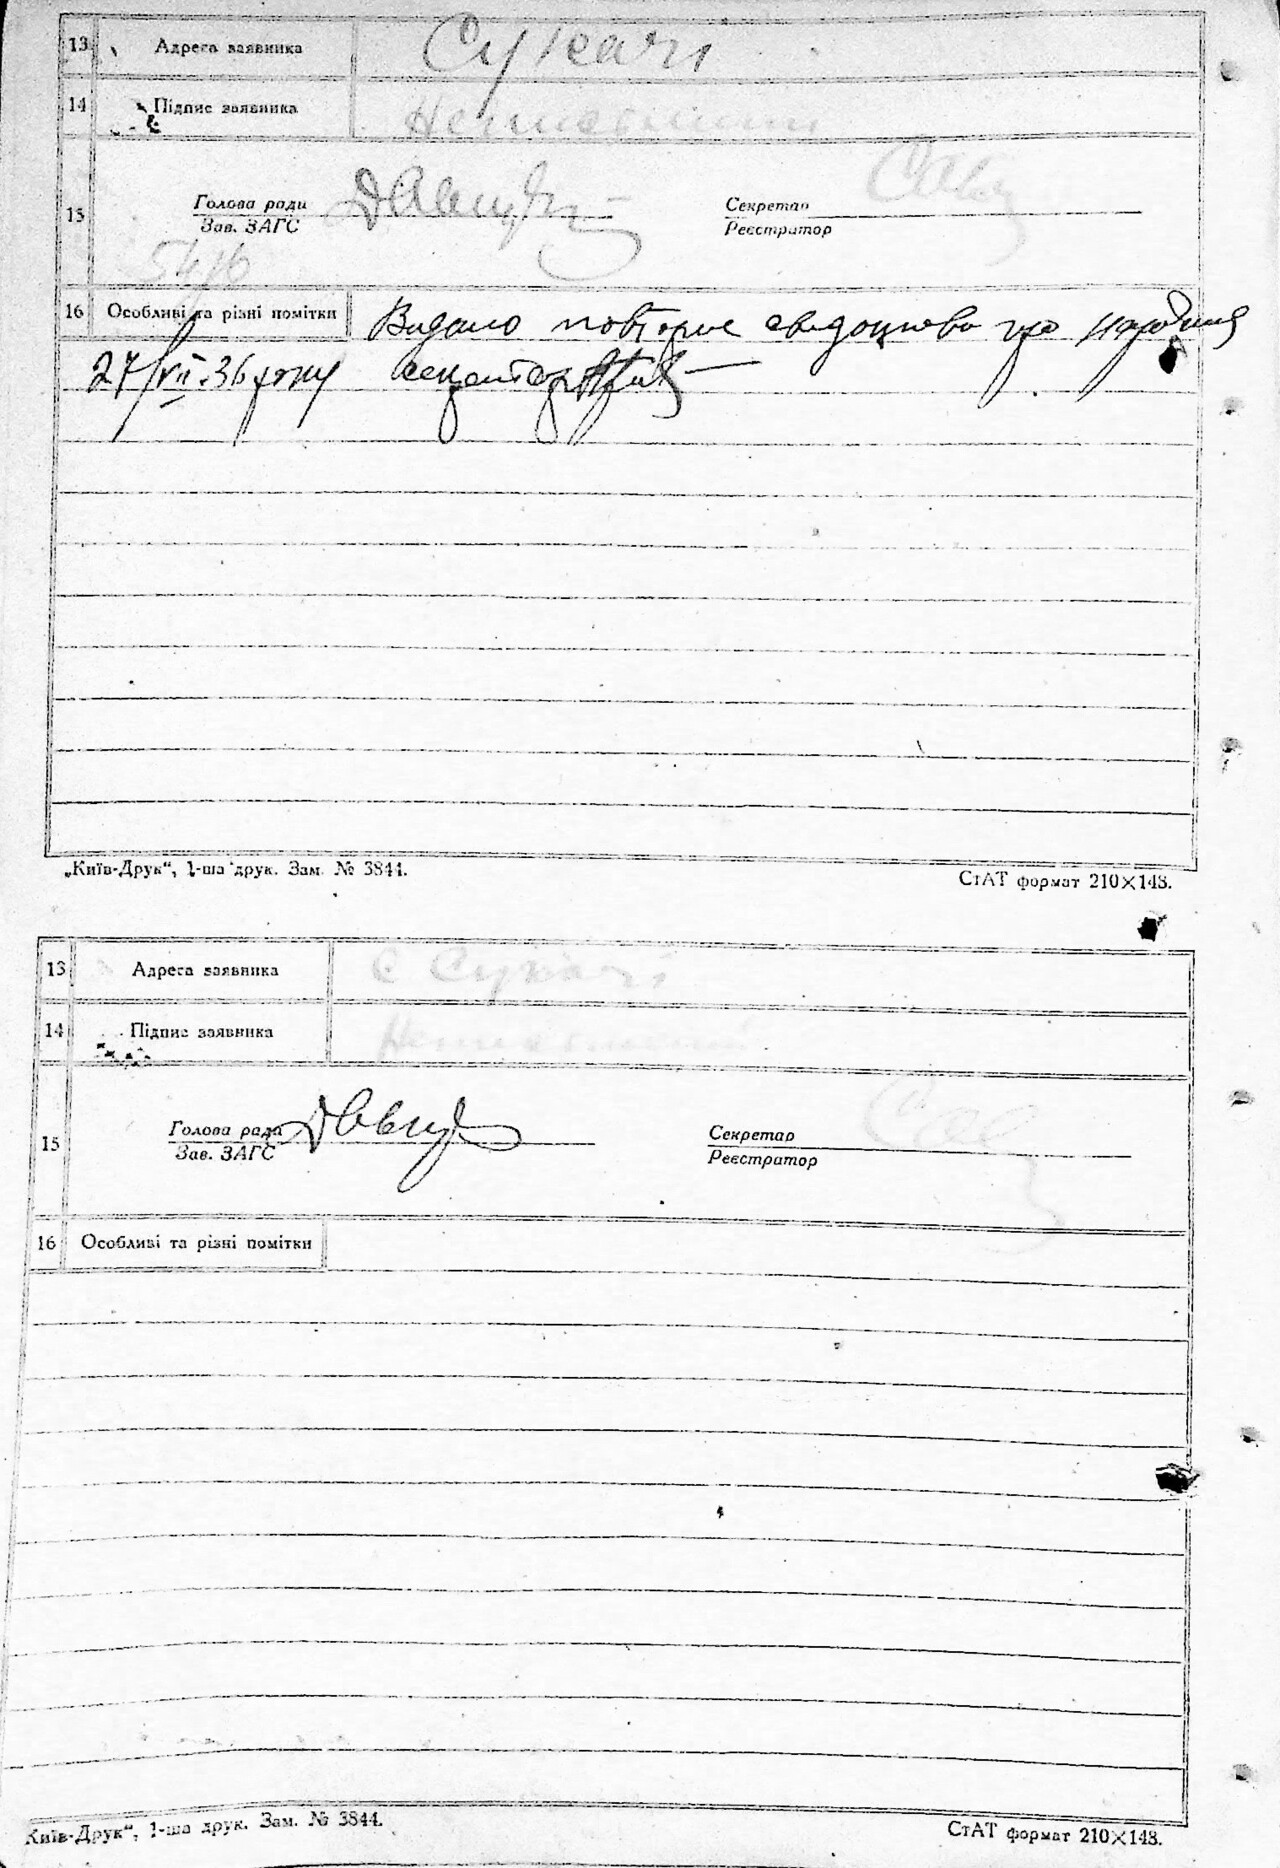 13 Адреса заявника Сукачі
14 Підпис заявника Неписьменний
15 Голова ради
Зав. ЗАГС
Секретар
Реєстратор
16 Особливі та різні помітки Видано повторне свидоцтво про народження
27/VII.36 року секретар
„Київ-Друк“, 1-ша друк. Зам. № 3844.
СтАТ формат 210×148.
13 Адреса заявника с Сукачі
14 Підпис заявника Неписьменний
15 Голова ради
Зав. ЗАГС
Секретар
Реєстратор
16 Особливі та різні помітки
Київ-Друк“, 1-ша друк. Зам. № 3844.
СтАТ формат 210×148.